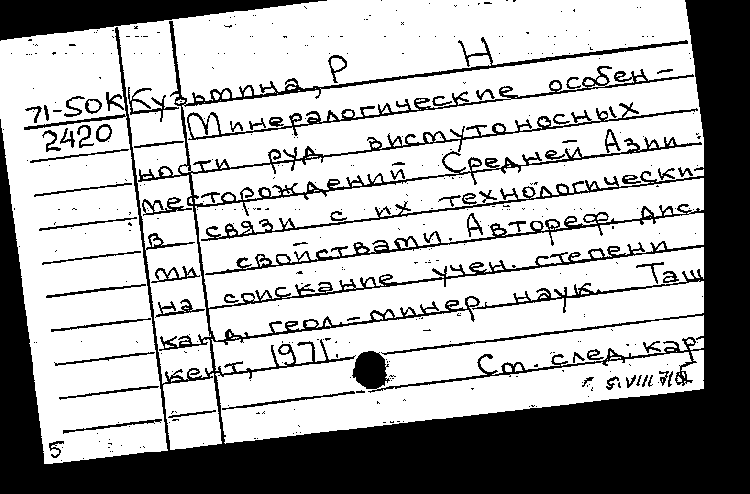 71-50К Кузьмина, Р Н
2420 Минералогические особен-
ности руд висмутоносных
месторождений Средней Азии
в связи с их технологически-
ми свойствами. Автореф. дис.
на соискание учен. степени
канд. геол.-минер. наук. Таш
кент, 1971.
См. след. кар-
5